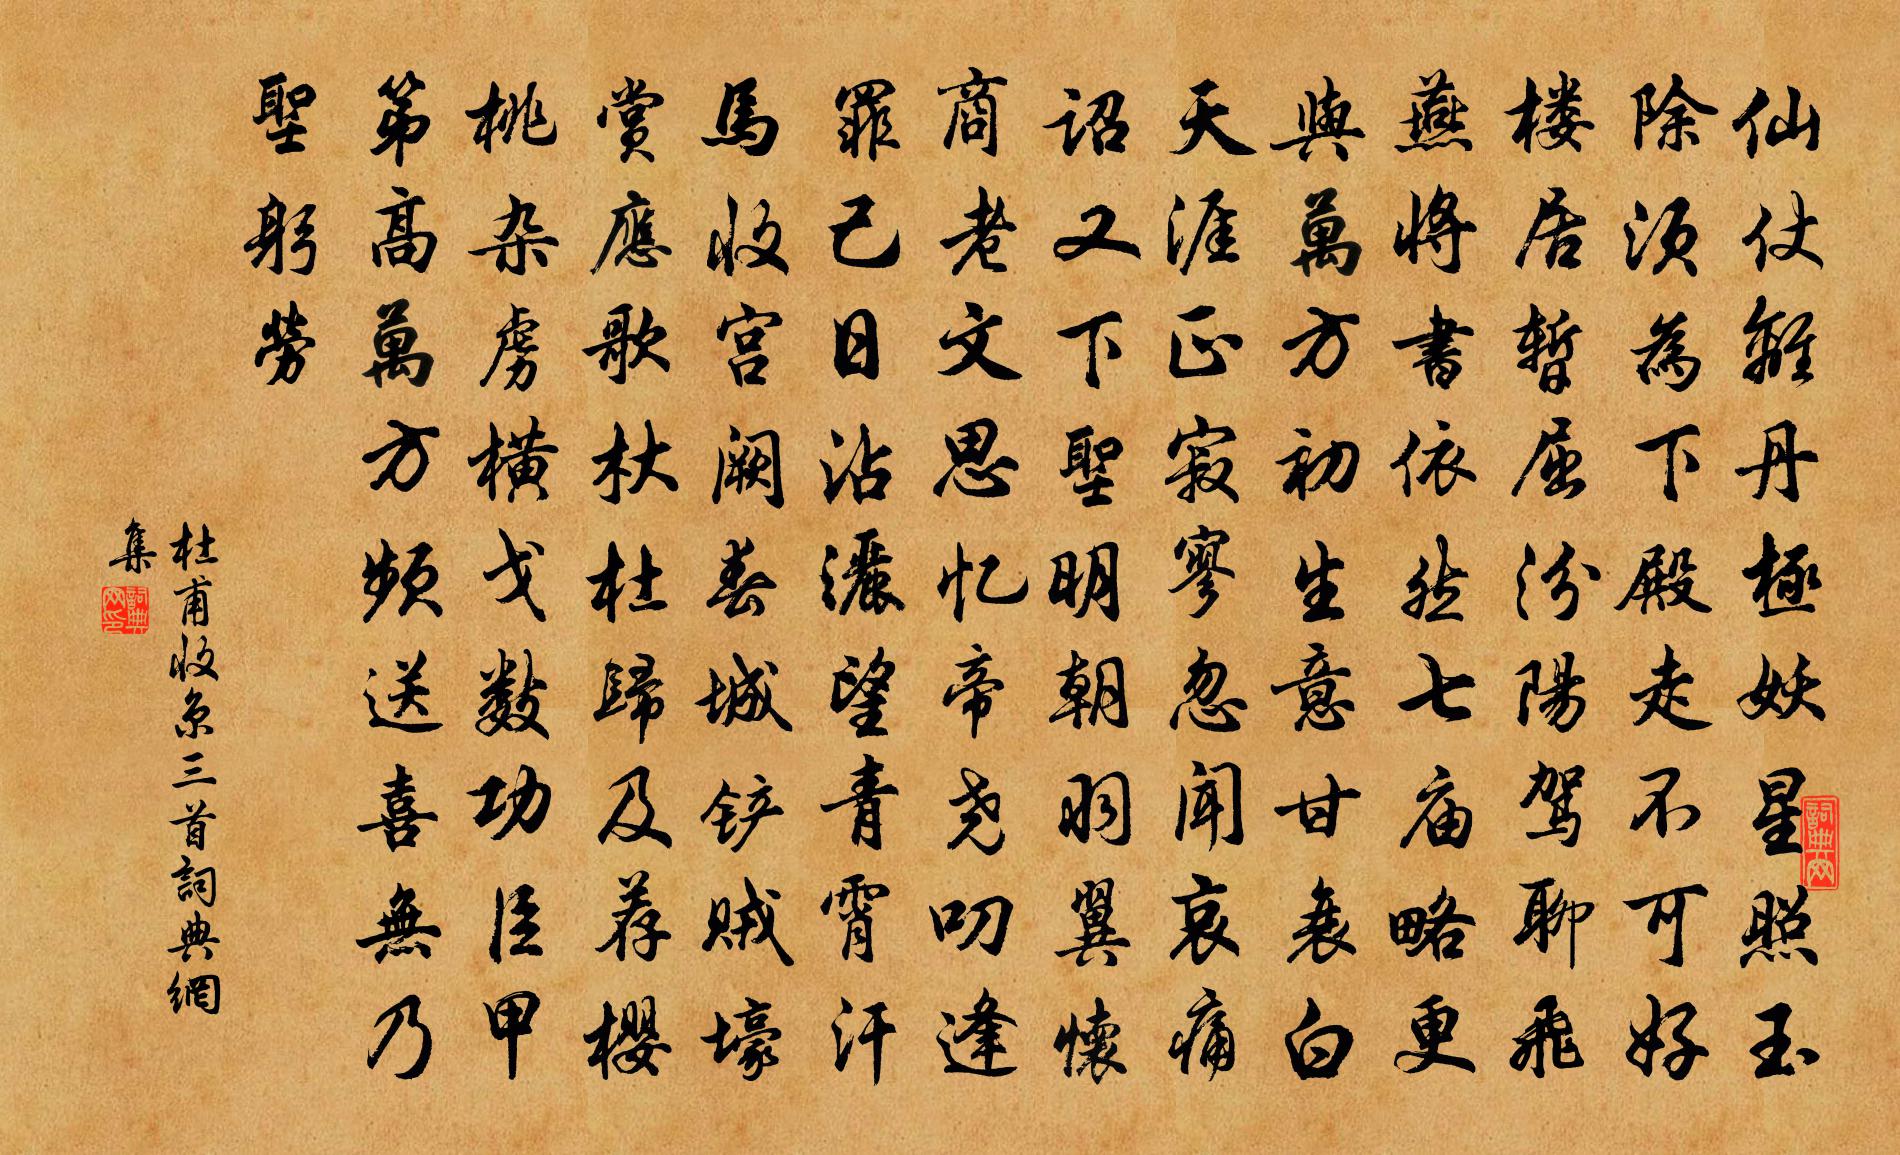 仙仗離丹極妖星照玉
除須為下殿走不可好
楼居暫屈汾陽駕聊飛
燕將書依然七庙略更
與萬方初生意甘衰白
天涯正寂寥忽聞哀痛
詔又下聖明朝羽翼懷
商老文思忆帝尧叨逢
罪己日沾灑望青霄汗
馬收宫阙春城铲賊壕
賞應歌杕杜歸及荐櫻
桃杂虜横戈數功臣甲
第高萬方頻送喜無乃
聖躬勞
杜甫收京三首詞典網
集
詞典网印
詞典网